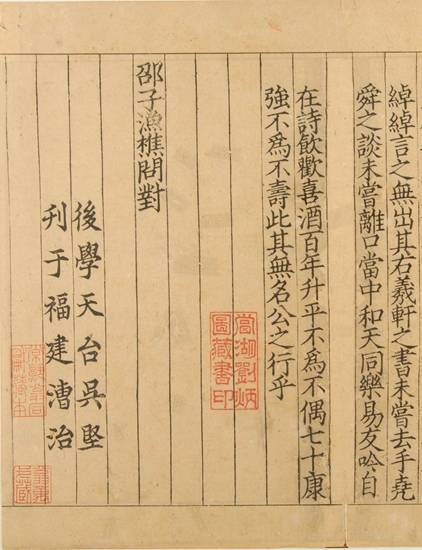 綽綽言之無出其右羲軒之書未嘗去手堯
舜之談未嘗離口當中和天同樂易友吟自
在詩飲歡喜酒百年升平不爲不偶七十康
強不爲不壽此其無名公之行乎
邵子漁樵問對
後學天台吳堅
刊于福建漕治
湖劉炳
圖藏書印